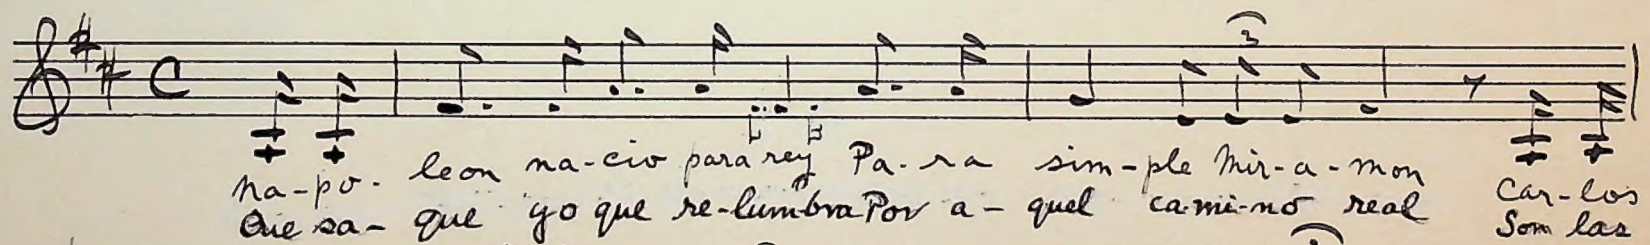 3
na-po- leon na-cio para rey Pa-ra sim-ple Mir-a-mon Car-los
Que sa- que yo que re-lumbra Por a- quel ca-mi-no real Som las